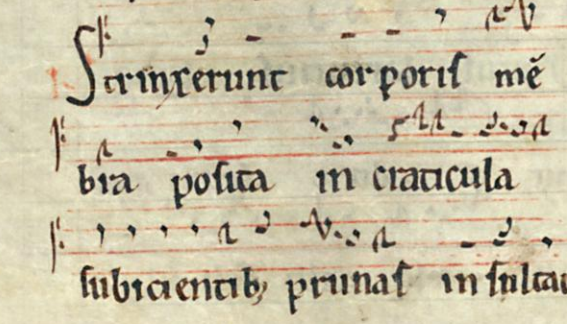 Strinxerunt corporis mē
bra posita in craticula
subicientib; prunas insultat